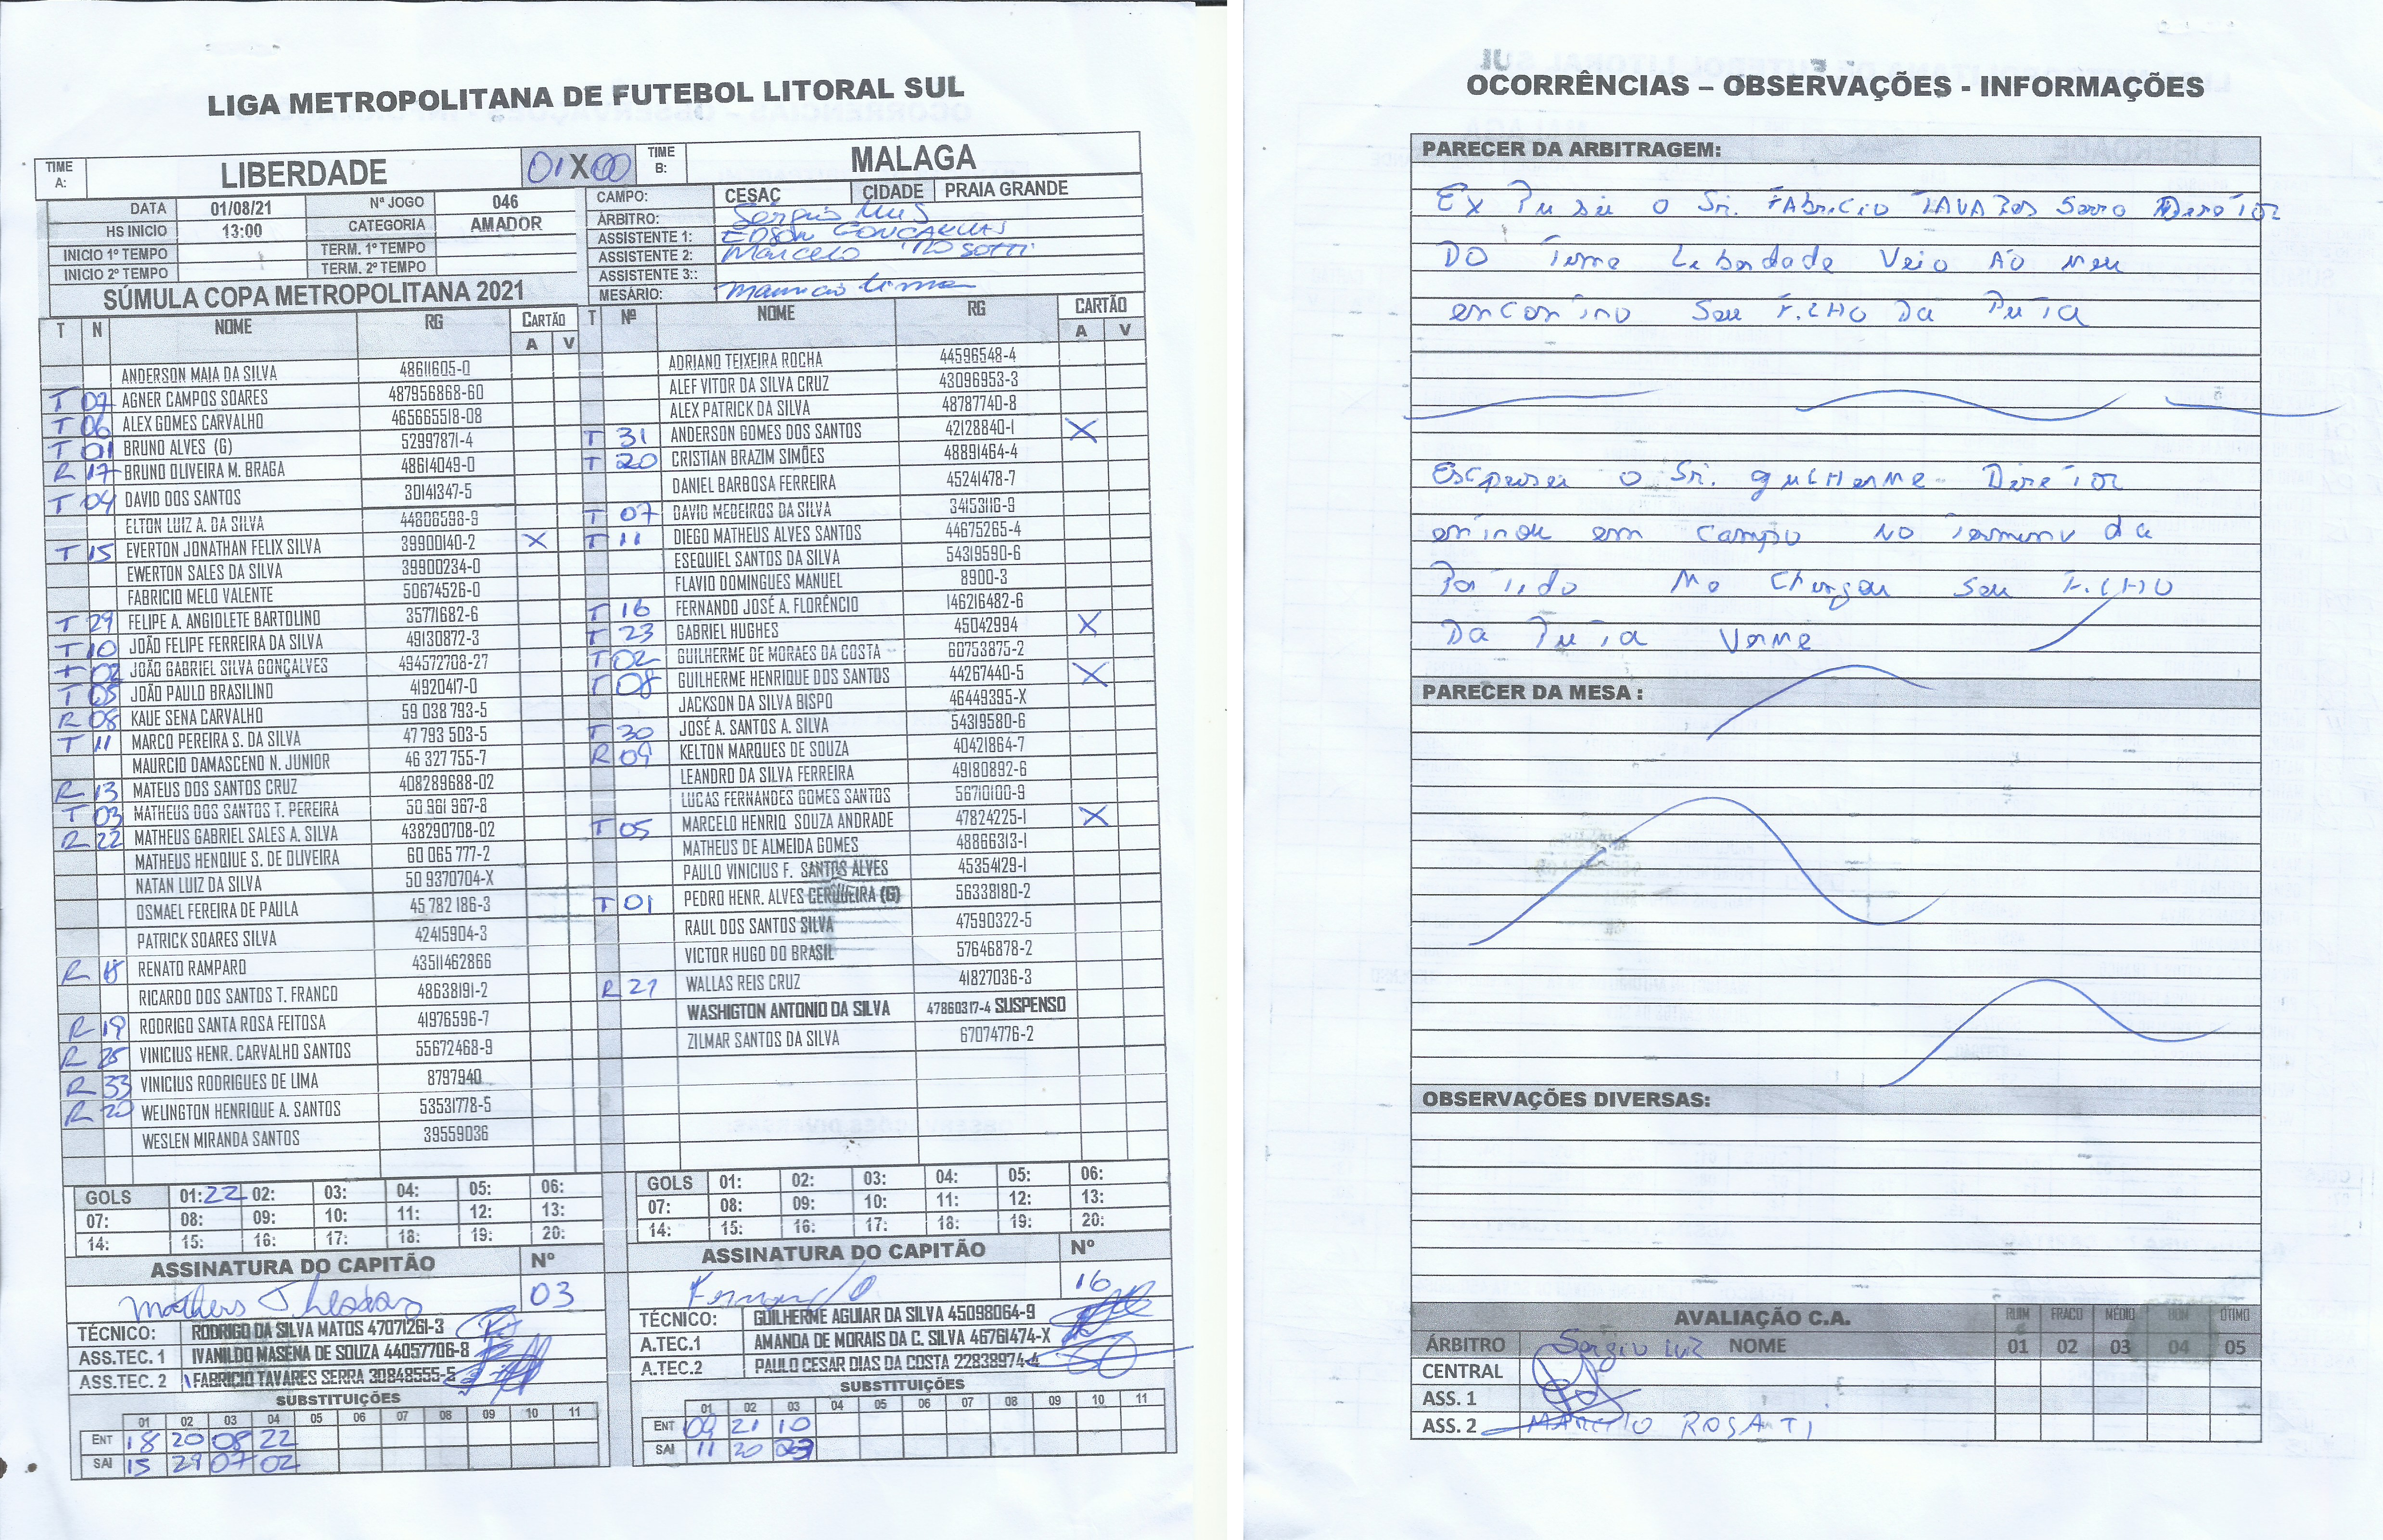 LIGA METROPOLITANA DE FUTEBOL LITORAL SUL
TIME A: LIBERDADE 01 X 00 TIME B: MALAGA
DATA 01/08/21 Nº JOGO 046
HS INICIO 13:00 CATEGORIA AMADOR
INICIO 1º TEMPO TERM. 1º TEMPO
INICIO 2º TEMPO TERM. 2º TEMPO
CAMPO: CESAC CIDADE PRAIA GRANDE
ÁRBITRO: Sergio
ASSISTENTE 1: EDSON GONÇALVES
ASSISTENTE 2: Marcelo
ASSISTENTE 3::
MESÁRIO: Mauricio Lima
SÚMULA COPA METROPOLITANA 2021
T N NOME RG CARTÃO A V
ANDERSON MAIA DA SILVA 48611605-0
T 07 AGNER CAMPOS SOARES 487956868-60
T 06 ALEX GOMES CARVALHO 465665518-08
T 01 BRUNO ALVES (G) 52997871-4
R 17 BRUNO OLIVEIRA M. BRAGA 48614049-0
T 04 DAVID DOS SANTOS 30141347-5
ELTON LUIZ A. DA SILVA 44806598-9
T 15 EVERTON JONATHAN FELIX SILVA 39900140-2 X
EWERTON SALES DA SILVA 39900234-0
FABRICIO MELO VALENTE 50674526-0
T 29 FELIPE A. ANGIOLETE BARTOLINO 35771682-6
T 10 JOÃO FELIPE FERREIRA DA SILVA 49130872-3
T 02 JOÃO GABRIEL SILVA GONÇALVES 494572708-27
T 05 JOÃO PAULO BRASILINO 41920417-0
R 08 KAUE SENA CARVALHO 59 038 793-5
T 11 MARCO PEREIRA S. DA SILVA 47 793 503-5
MAURCIO DAMASCENO N. JUNIOR 46 327 755-7
R 13 MATEUS DOS SANTOS CRUZ 408289688-02
T 03 MATHEUS DOS SANTOS T. PEREIRA 50 961 967-8
R 22 MATHEUS GABRIEL SALES A. SILVA 438290708-02
MATHEUS HENQIUE S. DE OLIVEIRA 60 065 777-2
NATAN LUIZ DA SILVA 50 9370704-X
OSMAEL FEREIRA DE PAULA 45 782 186-3
PATRICK SOARES SILVA 42415904-3
R 18 RENATO RAMPARO 43511462866
RICARDO DOS SANTOS T. FRANCO 48638191-2
R 19 RODRIGO SANTA ROSA FEITOSA 41976596-7
R 25 VINICIUS HENR. CARVALHO SANTOS 55672468-9
R 33 VINICIUS RODRIGUES DE LIMA 8797940
R 20 WELINGTON HENRIQUE A. SANTOS 53531778-5
WESLEN MIRANDA SANTOS 39559036
GOLS 01: 22 02: 03: 04: 05: 06:
07: 08: 09: 10: 11: 12: 13:
14: 15: 16: 17: 18: 19: 20:
ASSINATURA DO CAPITÃO Nº
Matheus 03
TÉCNICO: RODRIGO DA SILVA MATOS 47071261-3
ASS.TEC. 1 IVANILDO MASENA DE SOUZA 44057706-8
ASS.TEC. 2 FABRICIO TAVARES SERRA 30848555-5
SUBSTITUIÇÕES
01 02 03 04 05 06 07 08 09 10 11
ENT 18 20 08 22
SAI 15 29 07 02
T Nº NOME RG CARTÃO A V
ADRIANO TEIXEIRA ROCHA 44596548-4
ALEF VITOR DA SILVA CRUZ 43096953-3
ALEX PATRICK DA SILVA 48787740-8
T 31 ANDERSON GOMES DOS SANTOS 42128840-1 X
T 20 CRISTIAN BRAZIM SIMÕES 48891464-4
DANIEL BARBOSA FERREIRA 45241478-7
T 07 DAVID MEDEIROS DA SILVA 34153116-9
T 11 DIEGO MATHEUS ALVES SANTOS 44675265-4
ESEQUIEL SANTOS DA SILVA 54319590-6
FLAVIO DOMINGUES MANUEL 8900-3
T 16 FERNANDO JOSÉ A. FLORÊNCIO 146216482-6
T 23 GABRIEL HUGHES 45042994 X
T 02 GUILHERME DE MORAES DA COSTA 60753875-2
T 08 GUILHERME HENRIQUE DOS SANTOS 44267440-5 X
JACKSON DA SILVA BISPO 46449395-X
T 30 JOSÉ A. SANTOS A. SILVA 54319580-6
R 09 KELTON MARQUES DE SOUZA 40421864-7
LEANDRO DA SILVA FERREIRA 49180892-6
LUCAS FERNANDES GOMES SANTOS 56710100-9
T 05 MARCELO HENRIQ SOUZA ANDRADE 47824225-1 X
MATHEUS DE ALMEIDA GOMES 48866313-1
PAULO VINICIUS F. SANTOS ALVES 45354129-1
T 01 PEDRO HENR. ALVES CERQUEIRA (G) 56338180-2
RAUL DOS SANTOS SILVA 47590322-5
VICTOR HUGO DO BRASIL 57646878-2
R 21 WALLAS REIS CRUZ 41827036-3
WASHIGTON ANTONIO DA SILVA 47860317-4 SUSPENSO
ZILMAR SANTOS DA SILVA 67074776-2
GOLS 01: 02: 03: 04: 05: 06:
07: 08: 09: 10: 11: 12: 13:
14: 15: 16: 17: 18: 19: 20:
ASSINATURA DO CAPITÃO Nº
Fernando 16
TÉCNICO: GUILHERME AGUIAR DA SILVA 45098064-9
A.TEC.1 AMANDA DE MORAIS DA C. SILVA 46761474-X
A.TEC.2 PAULO CESAR DIAS DA COSTA 22838974-4
SUBSTITUIÇÕES
01 02 03 04 05 06 07 08 09 10 11
ENT 09 21 10
SAI 11 20
OCORRÊNCIAS – OBSERVAÇÕES - INFORMAÇÕES
PARECER DA ARBITRAGEM:
Ex Pu sei o Sr. FAbricio TAVARES Serro Diretor
DO Time Leberdade Veio AO Meu
encontro Seu FiLHO Da Puta
Escpusei o Sr. guiLHerMe Diretor
entrou em Campo NO termino da
Partido Me Chingou Seu FiLHO
Da Puta VerMe
PARECER DA MESA :
OBSERVAÇÕES DIVERSAS:
AVALIAÇÃO C.A. RUIM FRACO MÉDIO BOM ÓTIMO
ÁRBITRO Sergio Luz NOME 01 02 03 04 05
CENTRAL
ASS. 1
ASS. 2 MARCELO ROSATTI